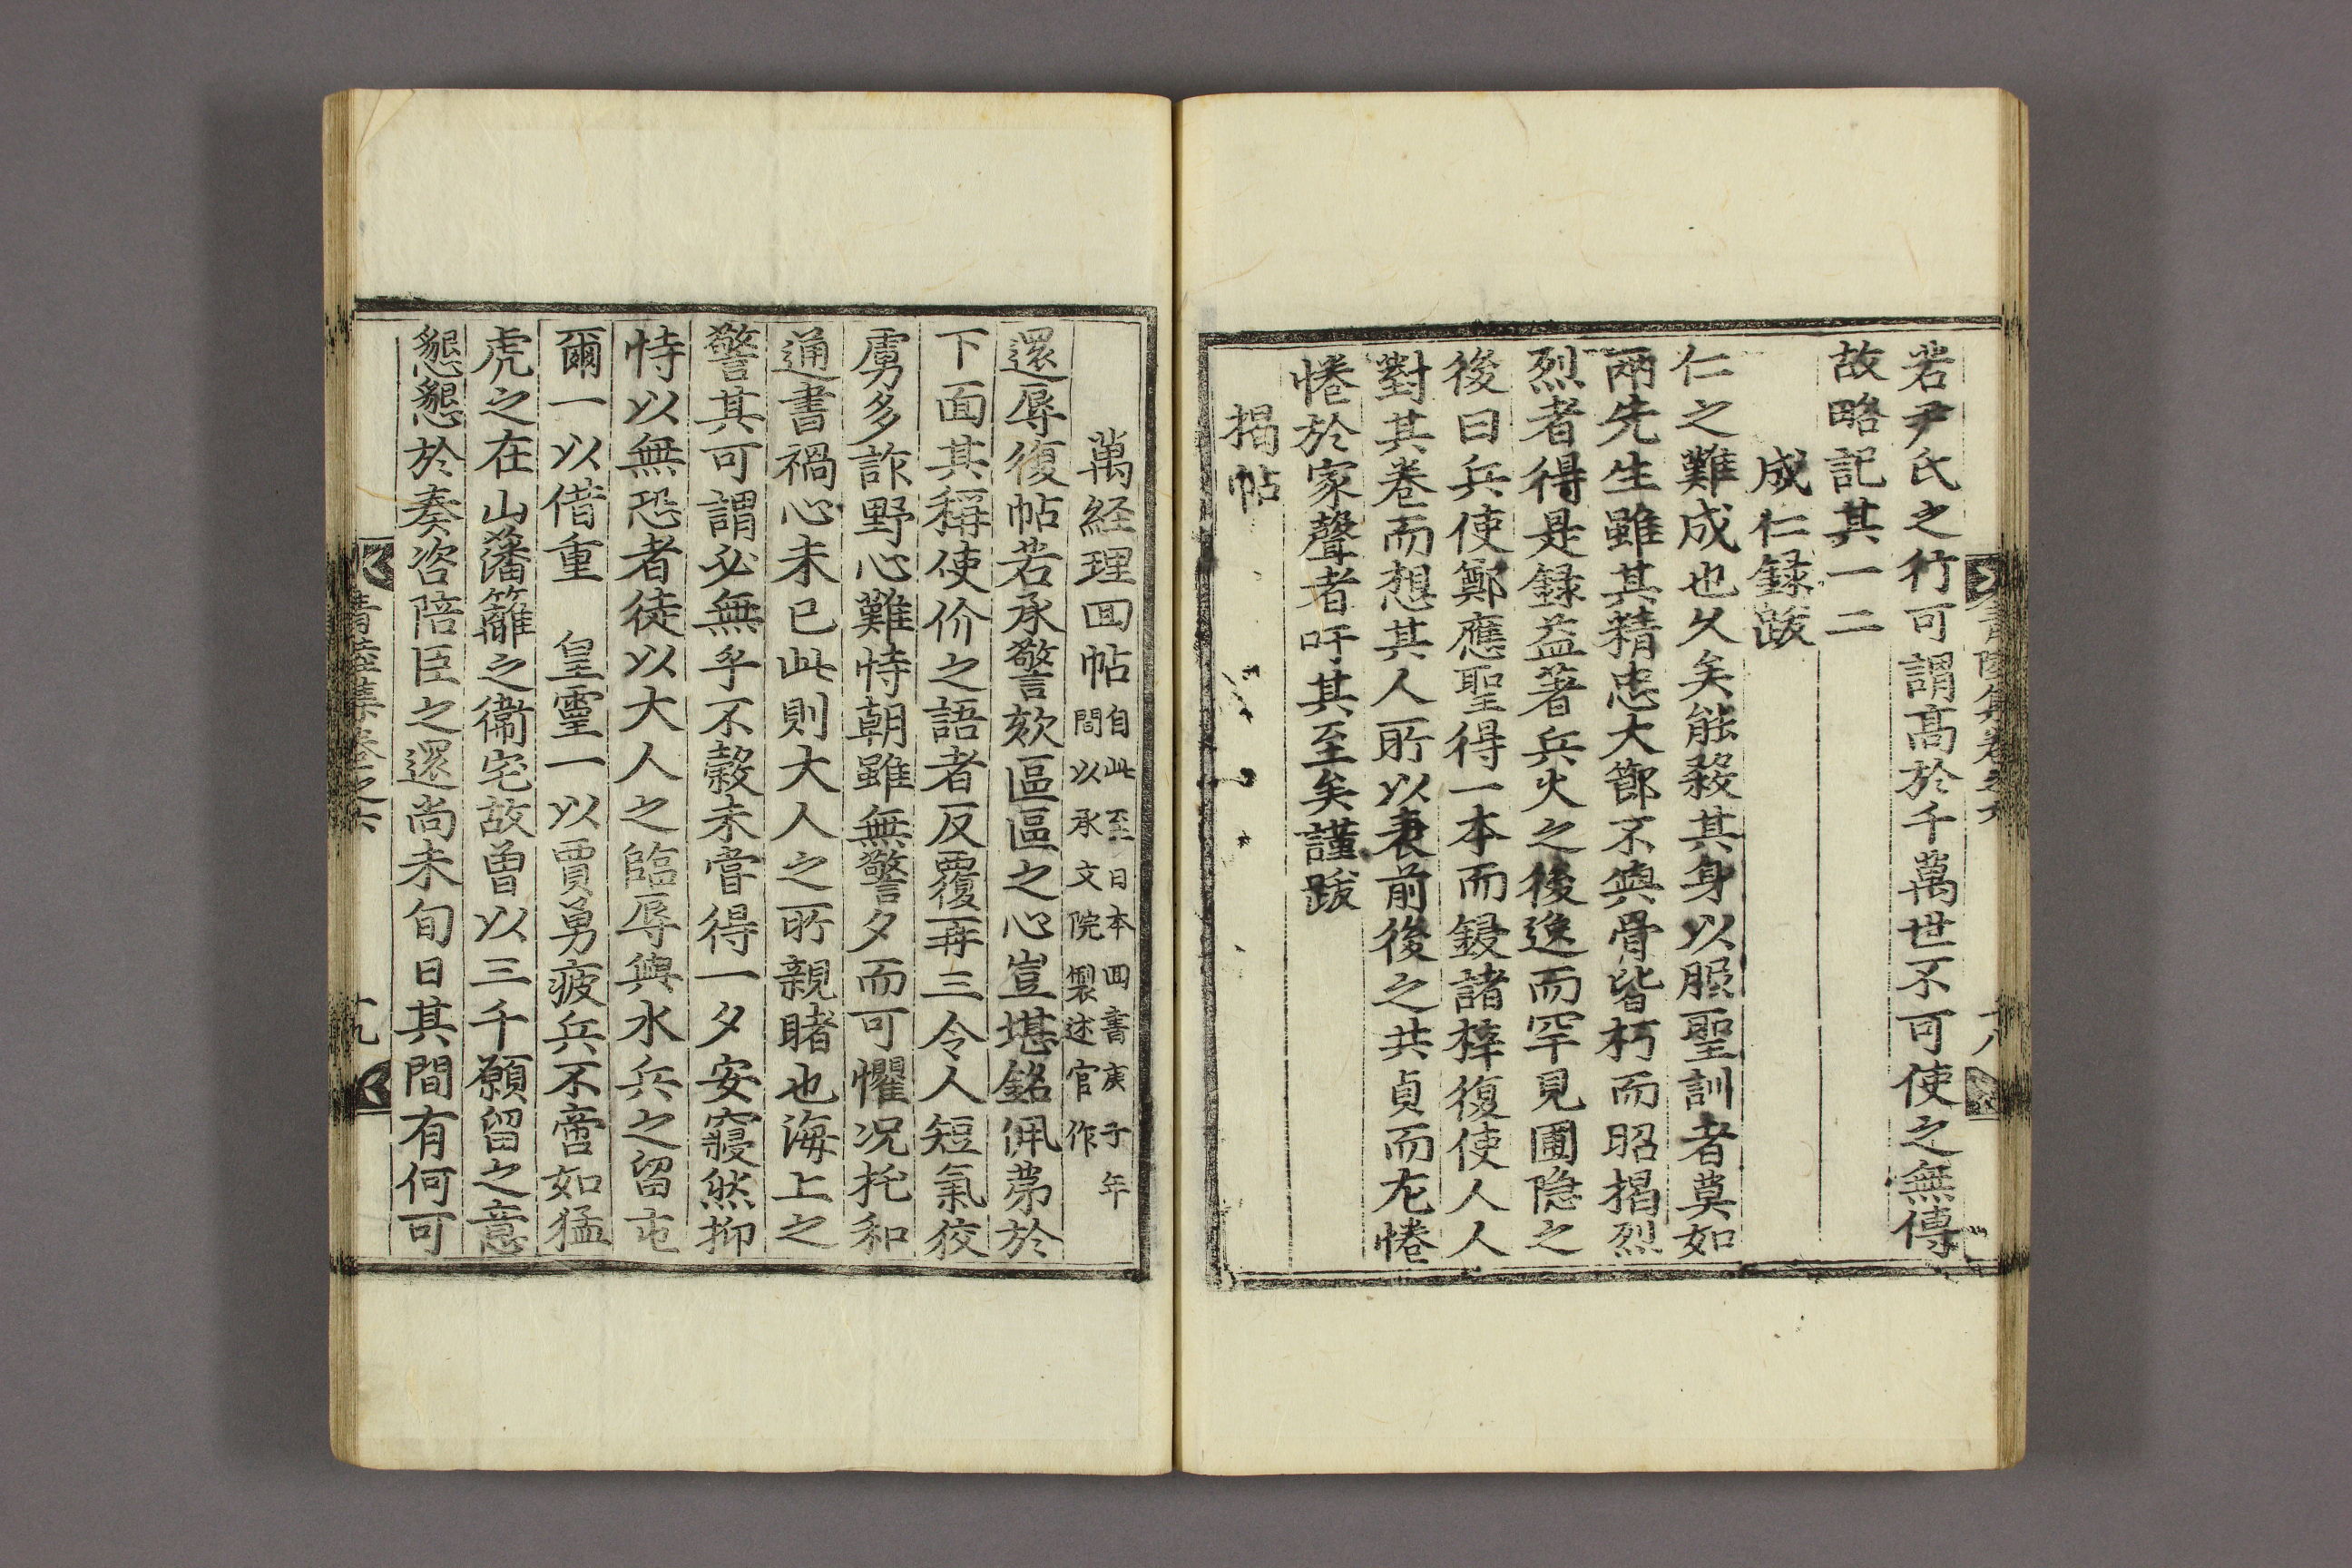 若尹氏之行可謂高於千萬世不可使之無傳
故略記其一二
成仁録跋
仁之難成也久矣能殺其身以服聖訓者莫如
兩先生雖其精忠大節不與骨皆朽而昭揭烈
烈者得是録益著兵火之後逸而罕見圃隐之
後曰兵使鄭應聖得一本而鋟諸梓復使人人
對其卷而想其人所以表前後之共貞而尤惓
惓於家聲者吁其至矣謹跋
揭帖
萬経理回帖
自此至日本回書庚子年
間以承文院製述官作
還辱復帖若承警欬區區之心豈堪銘佩第於
下面其稱使价之語者反覆再三令人短氣狡
虜多詐野心難恃朝雖無警夕而可懼况托和
通書禍心未已此則大人之所親睹也海上之
警其可謂必無乎不穀未甞得一夕安寢然抑
恃以無恐者徒以大人之臨辱與水兵之留屯
爾一以借重　皇靈一以賈勇疲兵不啻如猛
虎之在山藩籬之衛宅故曾以三千願留之意
懇懇於奏咨陪臣之還尚未旬日其間有何可
青陸集卷之六